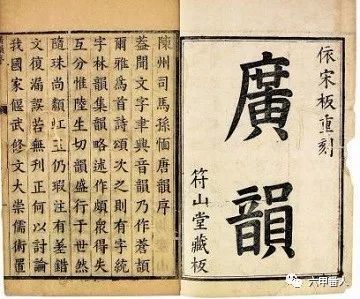 依宋板重刻
廣韻
符山堂藏板
陳州司馬孫愐唐韻序
蓋聞文字聿興音韻乃作蒼頡
爾雅爲首詩頌次之則有字統
字林韻集韻略述作頗衆得失
互分惟陸生切韻盛行于世然
隋珠尚纇虹玉仍瑕註有差錯
文復漏誤若無刊正何以討論
我國家偃武修文大崇儒術置
六甲番人